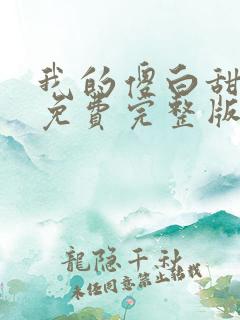 我的傻白甜
免費完整版
龍隐千秋
未任同意禁止转载